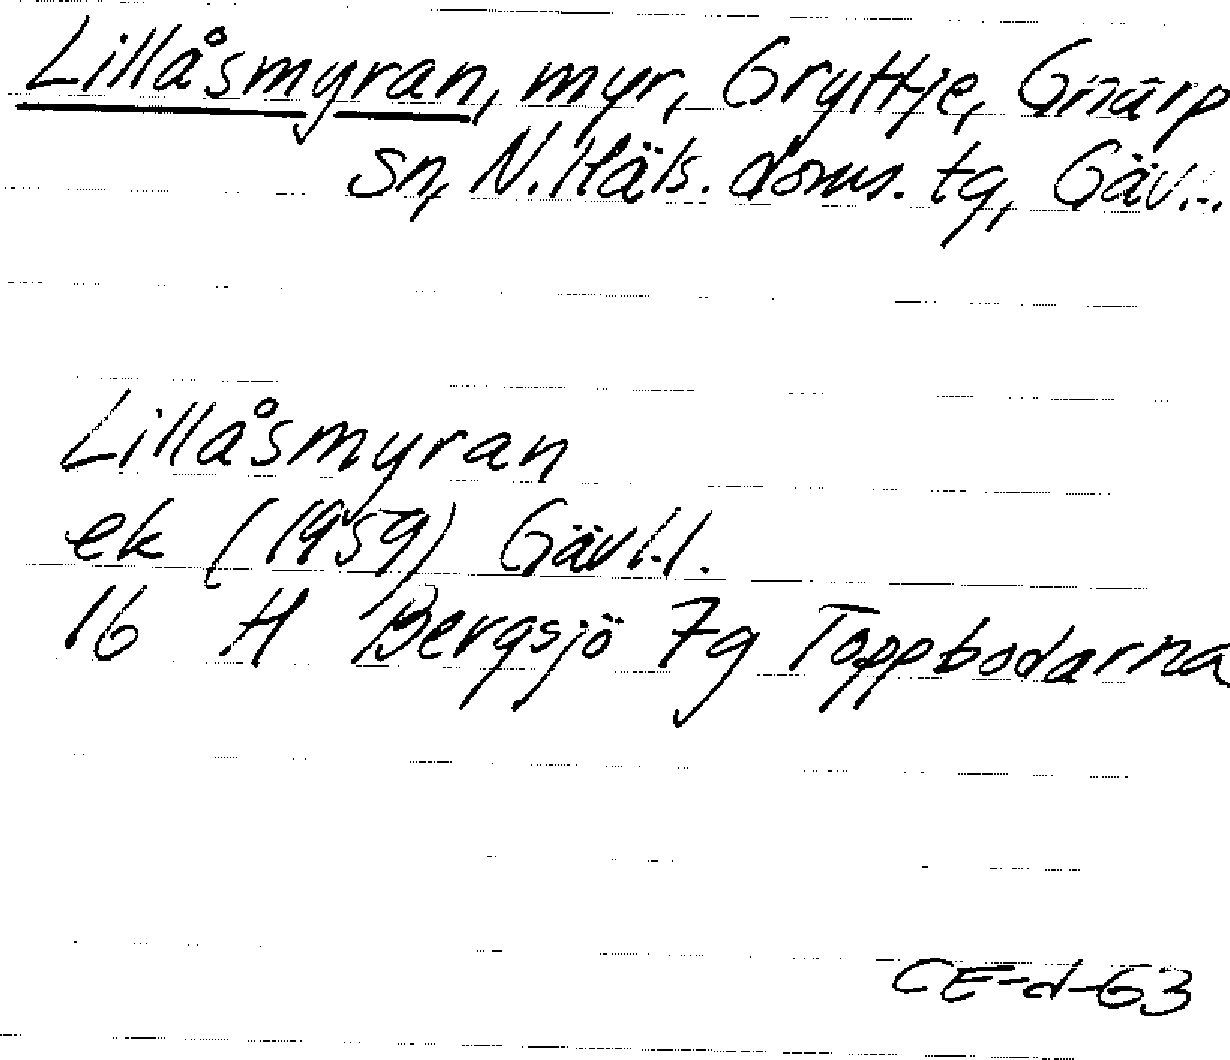 Lillåsmyran, myr, Gryttje, Gnarp
sn, N. Häls. doms. tg, Gävl.
Lillåsmyran
ek (1959) Gävl.l.
16 H Bergsjö 7g Toppbodarna
CE-d-63